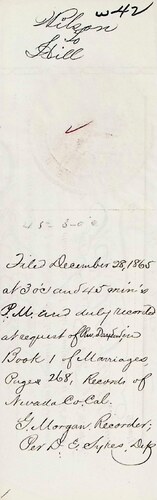 Wilson W42
to
Hill
Filed December 28, 1865
at 3 oc and 45 min's
P.M. and duly recorded
at request of
Book 1 of Marriages
Page 268, Records of
Nevada Co. Cal.
G. Morgan Recorder,
Per D. E. Sykes Dep